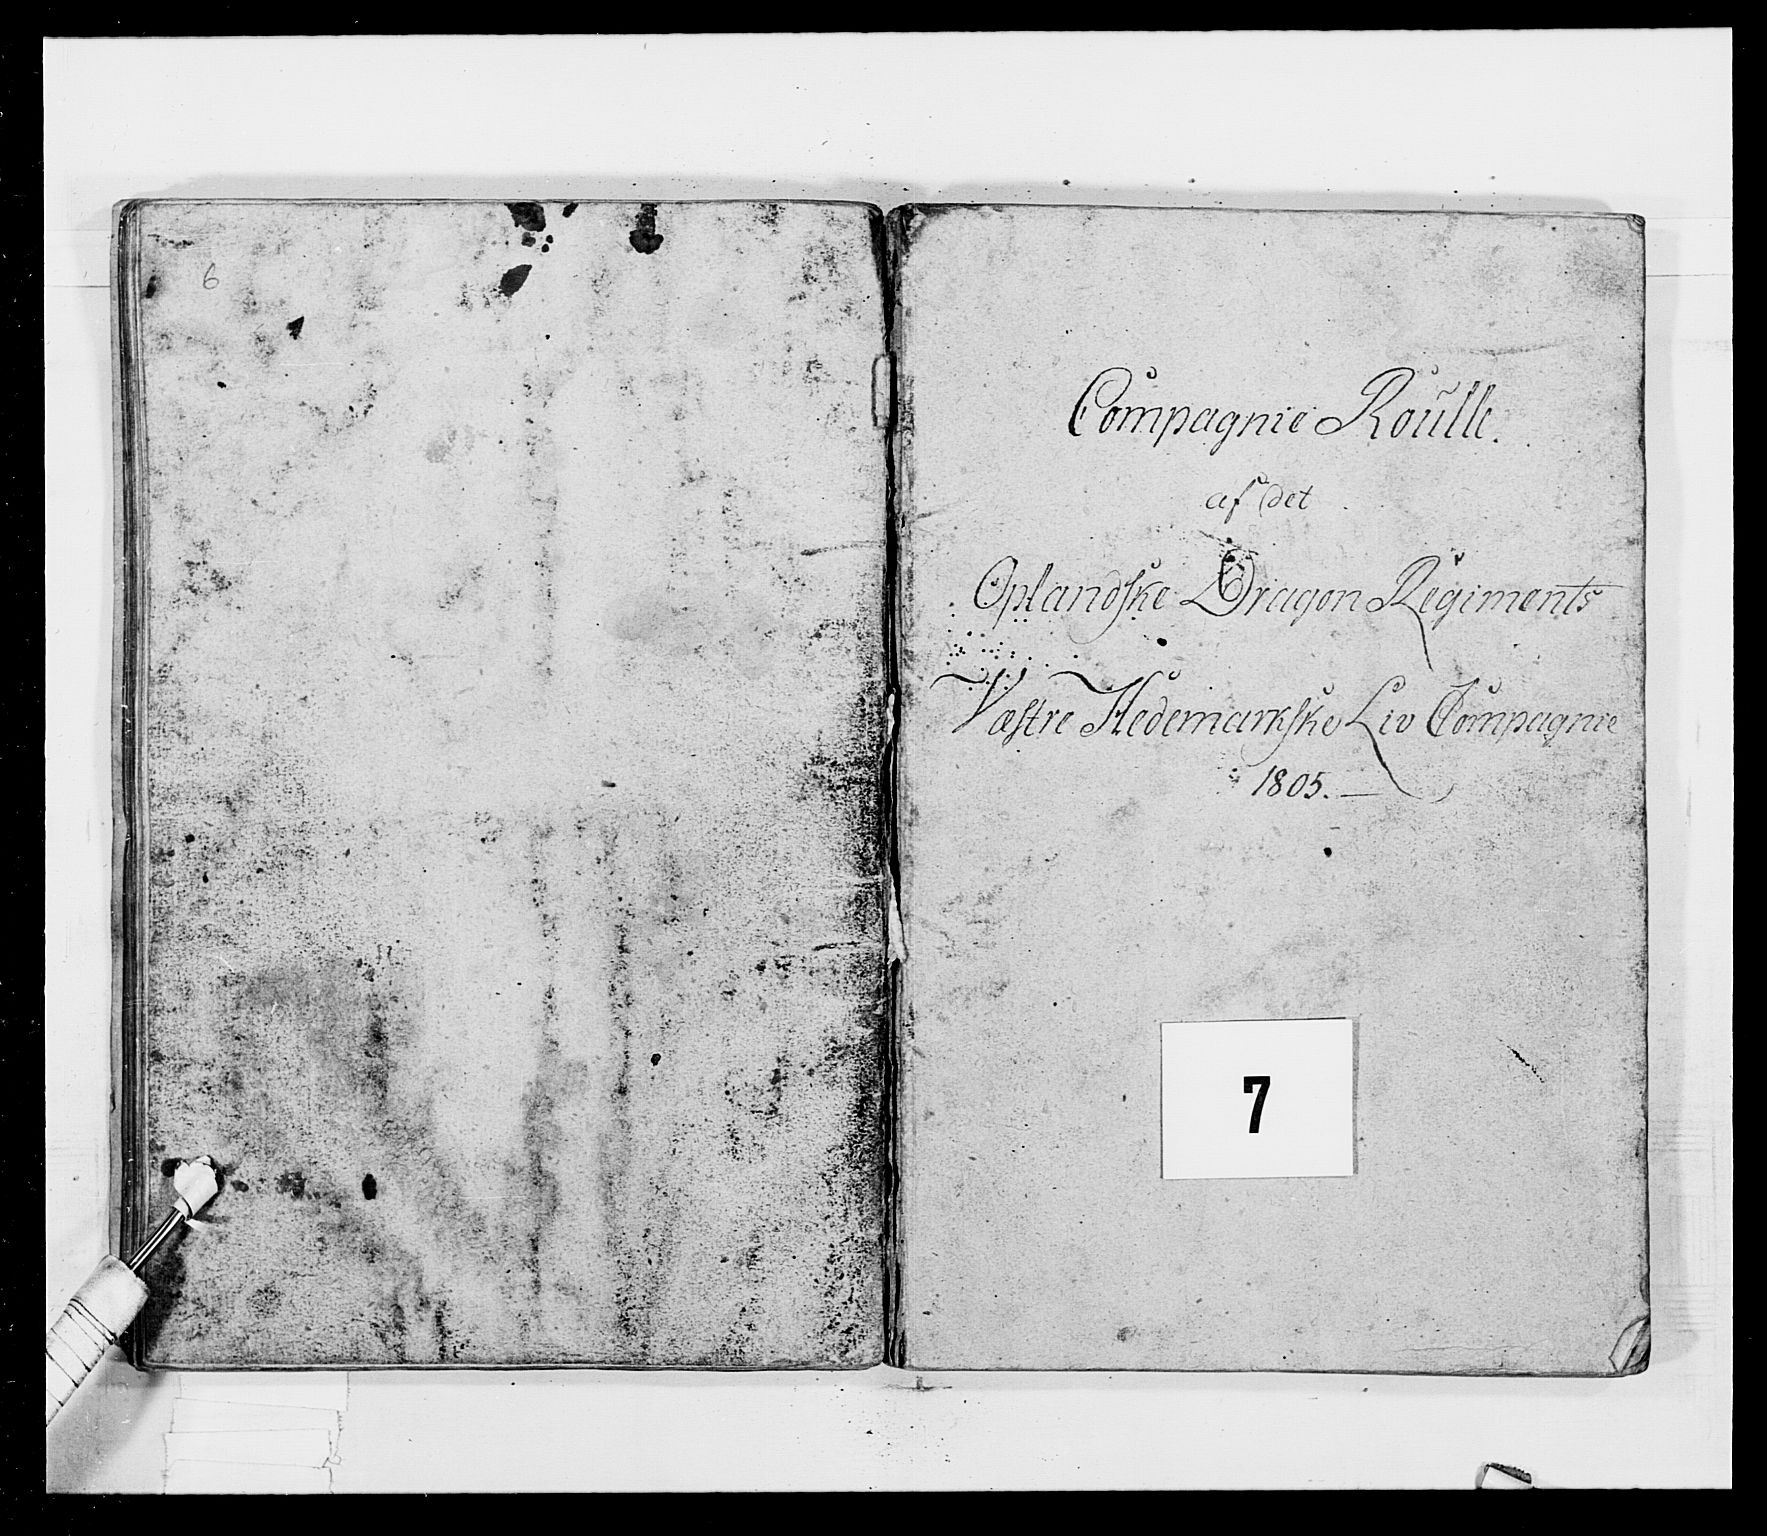 6
Compagnie Roulle.
af det
Oplandske Dragon Regiments
Væstre Hedemarkske Liv Compagnie
1805. —
7